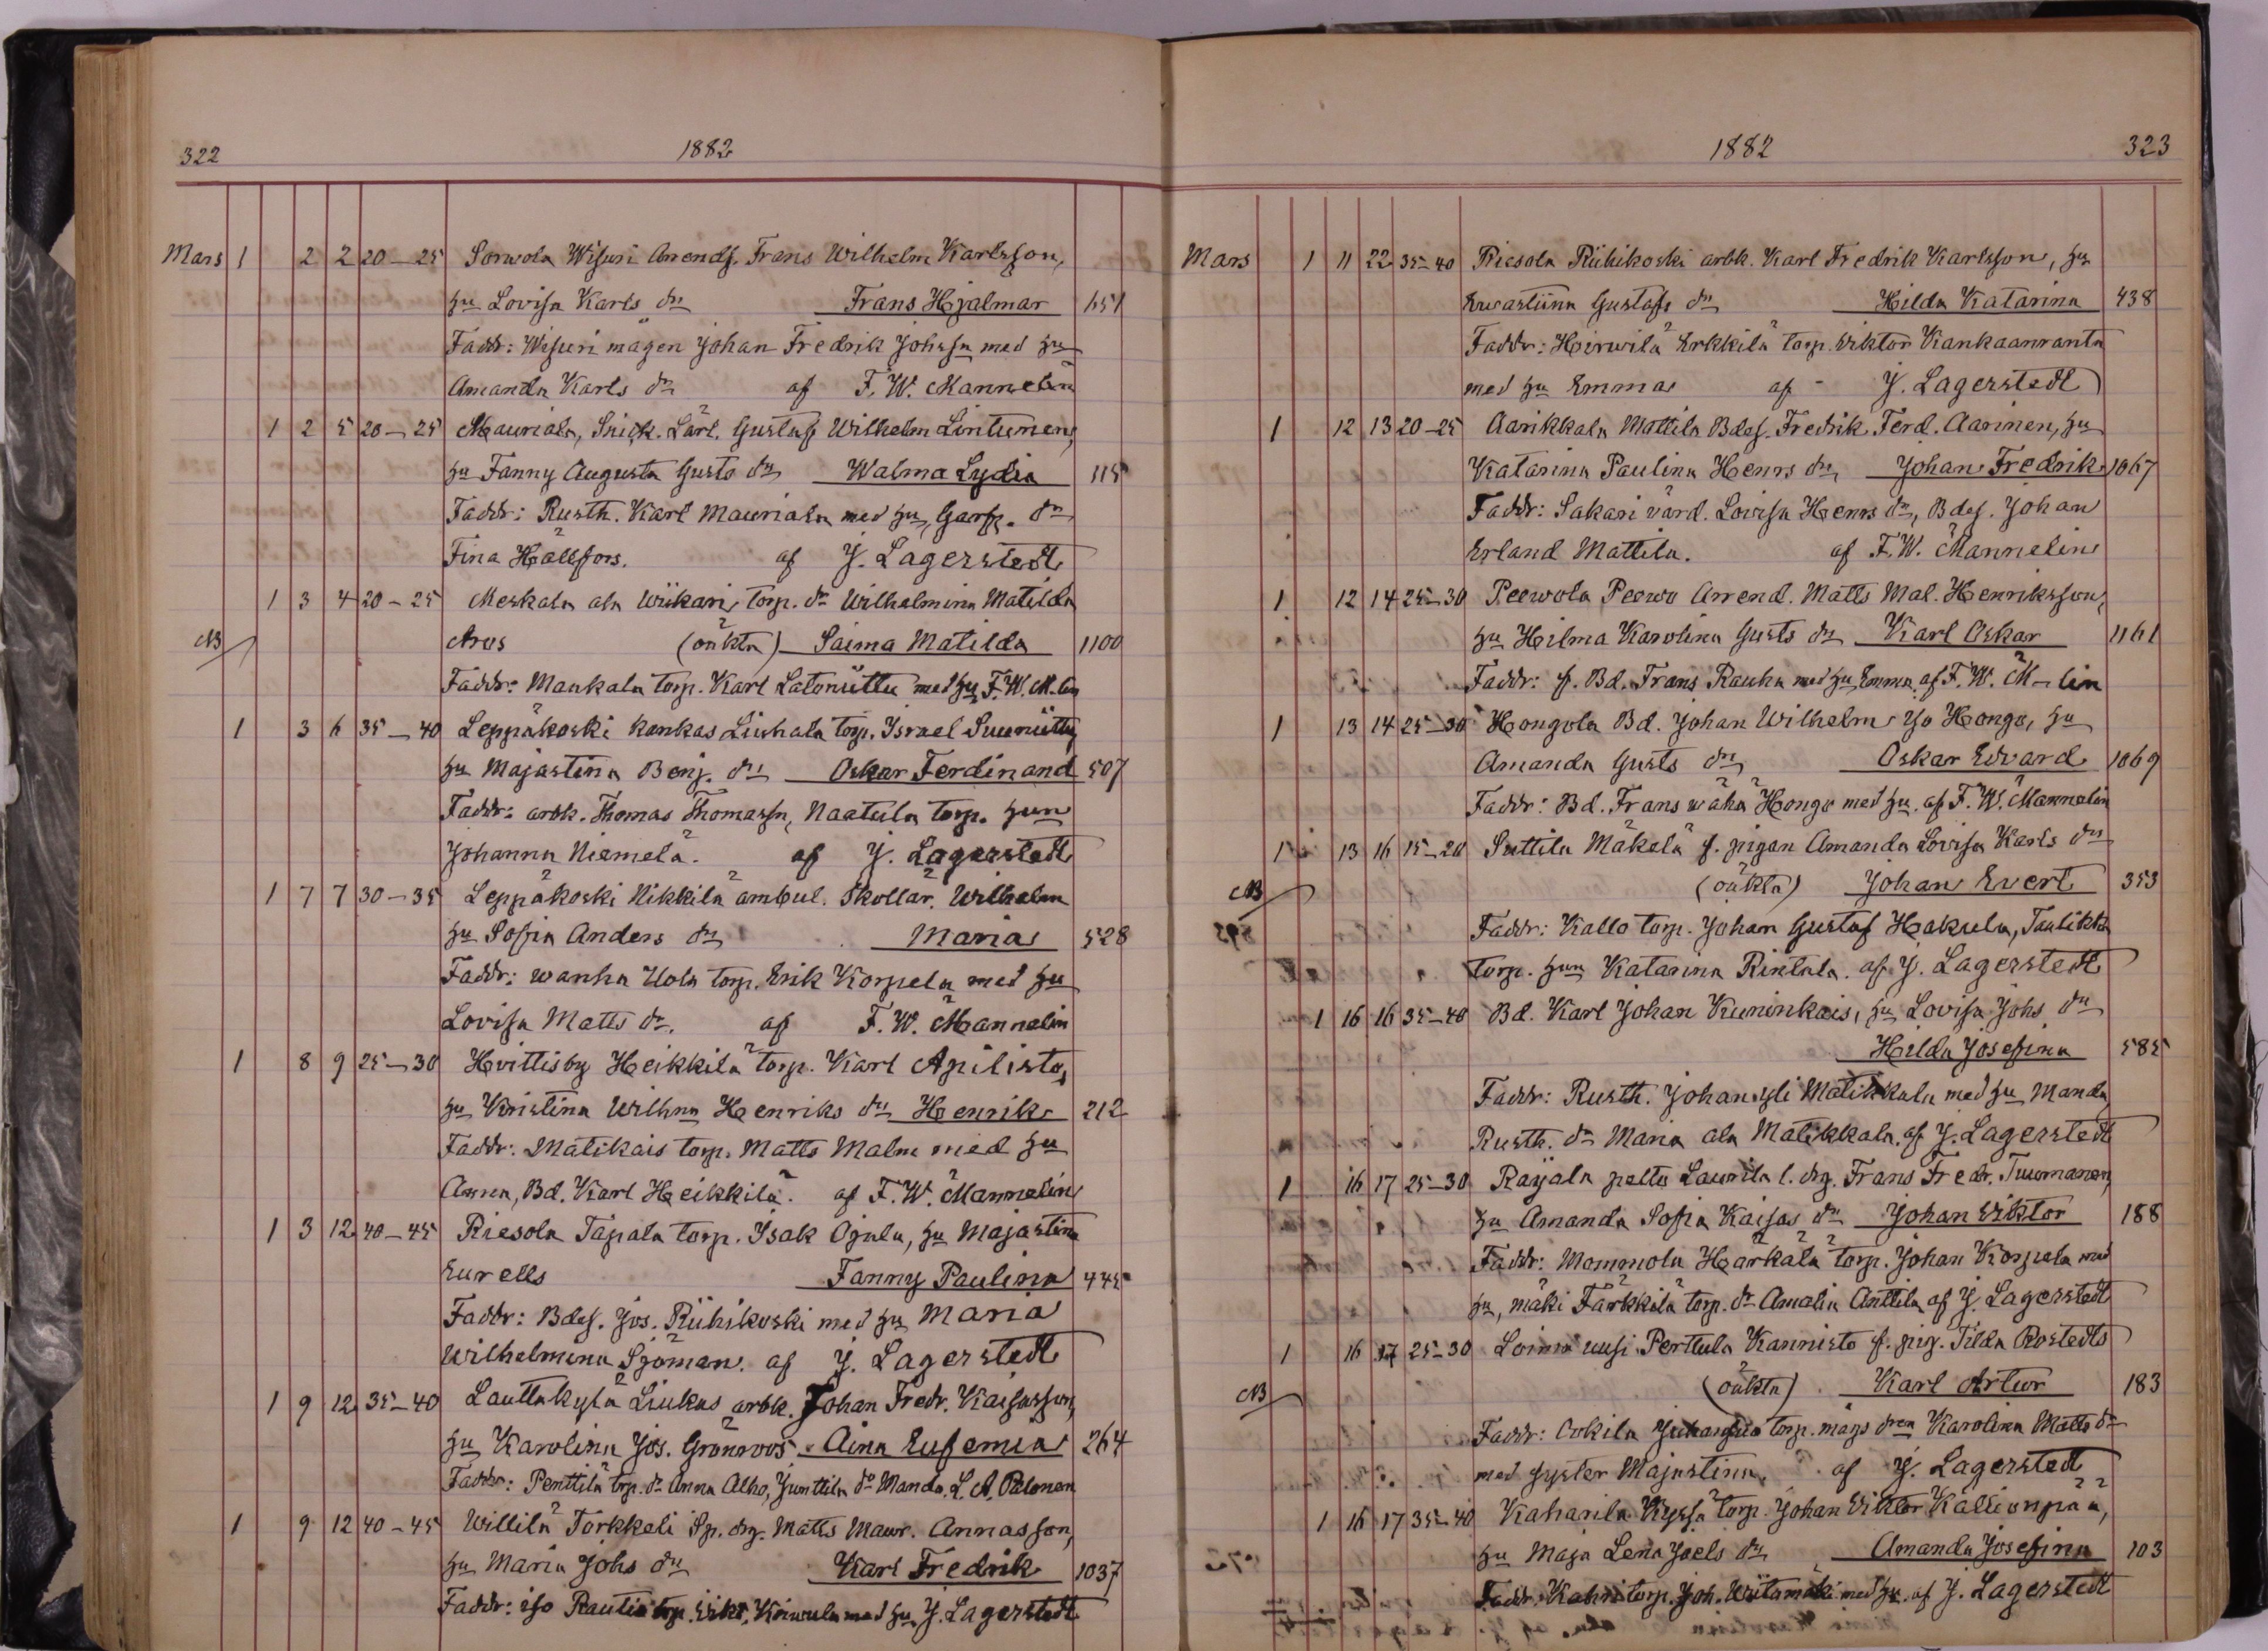 322 1882
Mars 1 2 2 20-25 Sorwola Wisuri Arends. Frans Wilhelm Karlsson,
hu Lovisa Karls dr Frans Hjalmar 651
Faddr: Wisuri mågen Johan Fredrik Johssn med hu
Amanda Karls dr af F. W. Mannelin
1 2 5 20-25 Mauriala, Snick. Lärl. Gustaf Wilhelm Lintunen,
hu Fanny Augusta Gusts dr Walma Lydia 115
Faddr: Rusth. Karl Mauriala med hu, Garf. dr
Fina Hällfors. af J. Lagerstedt
1 3 4 20-25 Meskala ala Wiikari, torp. dr Wilhelmina Matilda
NB Aros (oäkta) Saima Matilda 1100
Faddr: Mankala torp. Karl Latoniittu med hu F. W. M.lin
1 3 6 35-40 Leppäkoski kankas Liuhala torp. Israel Suuniittu,
hu Majastina Benj. dr Oskar Ferdinand 507
Faddr: arbk. Thomas Thomassn, Naatula torp. hun
Johanna Niemelä. af J. Lagerstedt
1 7 7 30-35 Leppäkoski Nikkilä ambul. Skollär. Wilhelm
hu Sofia Anders dr Maria 528
Faddr: wanha Uola torp. Erik Korpela med hu
Lovisa Matts dr. af F. W. Mannelin
1 8 9 25-30 Hvittisby Heikkilä torp. Karl Apilisto,
hu Kristina Wilhna Henriks dr Henrik 212
Faddr: Matikais torp. Matts Malm med hu
Anna, Bd. Karl Heikkilä. af F. W. Mannelin
1 3 12 40-45 Riesola Tapala torp. Isak Ojala, hu Majastina
Eurells Fanny Paulina 445
Faddr: Bdes. Jos. Riihikoski med hu Maria
Wilhelmina Sjöman. af J. Lagerstedt
1 9 12 35-40 Lauttakylä Liukas arbk. Johan Fredr. Kaisasson,
hu Karolina Jos. Grönroos Aina Eufemia 264
Faddr: Penttilä torp. dr Anna Alho, Junttila dr Manda. L. A. Palonen
1 9 12 40-45 Willilä Törkkeli Sp. drg. Matts Maur. Annasson,
hu Maria Johs dr Karl Fredrik 1037
Faddr: iso Rautio torp. Vikt. Koiwula med hu J. Lagerstedt
1882 323
Mars 1 11 22 35-40 Riesola Riihikoski arbk. Karl Fredrik Karlsson, hu
Ewastiina Gustafs dr Hilda Katarina 438
Faddr: Hirwilä Erkkilä torp. Viktor Kankaanranta
med hu Emma af J. Lagerstedt
1 12 13 20-25 Aarikkala Mattila Bdes. Fredrik Ferd. Aarinen, hu
Katarina Paulina Henrs dr, Johan Fredrik 1067
Faddr: Sakari värd. Lovisa Henrs dr, Bdes. Johan
Erland Mattila. af F. W. Mannelin
1 12 14 25-30 Peewola Peewo Arrend. Matts Mal. Henriksson,
hu Hilma Karolina Gusts dr Karl Oskar 1161
Faddr: f. Bd. Frans Rauha med hu Emma af F. W. M-lin
1 13 14 25-30 Hongola Bd. Johan Wilhelm Yo Hongo, hu
Amanda Gusts dr Oskar Edvard 1069
Faddr: Bd. Frans wähä Hongo med hu af F. W. Mannelin
1 13 16 15-20 Suttila Mäkelä f. pigan Amanda Lovisa Karls dr
NB (oäkta) Johan Evert 353
Faddr: Kallo torp. Johan Gustaf Hakula,
torp. hun Katarina Rintala. af J. Lagerstedt
1 16 16 35-40 Bd. Karl Johan Kuninkais, hu Lovisa Johs dr
Hilda Josefina 585
Faddr: Rusth. Johan yli Matikkala med hu Manda,
Rusth. dr Maria ala Matikkala. af J. Lagerstedt
1 16 17 25-30 Raijala peltu Laurila l. drg. Frans Fredr. Tuomanen,
hu Amanda Sofia Kaisas dr Johan Viktor 188
Faddr: Mommola Härkälä torp. Johan Korpela med
hu, mäki Färkkilä torp. dr Amalia Anttila af J. Lagerstedt
1 16 17 25-30 Loima uusi Perttula Kannisto f. pig. Tilda Rostedts
NB (oäkta) Karl Artur 183
Faddr: torp. mågs dren Karolina Matts dr
med syster Majastina. af J. Lagerstedt
1 16 17 35-40 Kaharila Kyssä torp. Johan Viktor Kallionpää,
hu Maja Lena Joels dr Amanda Josefina 103
Faddr. torp. Joh. Wiitamäki med hu af J. Lagerstedt